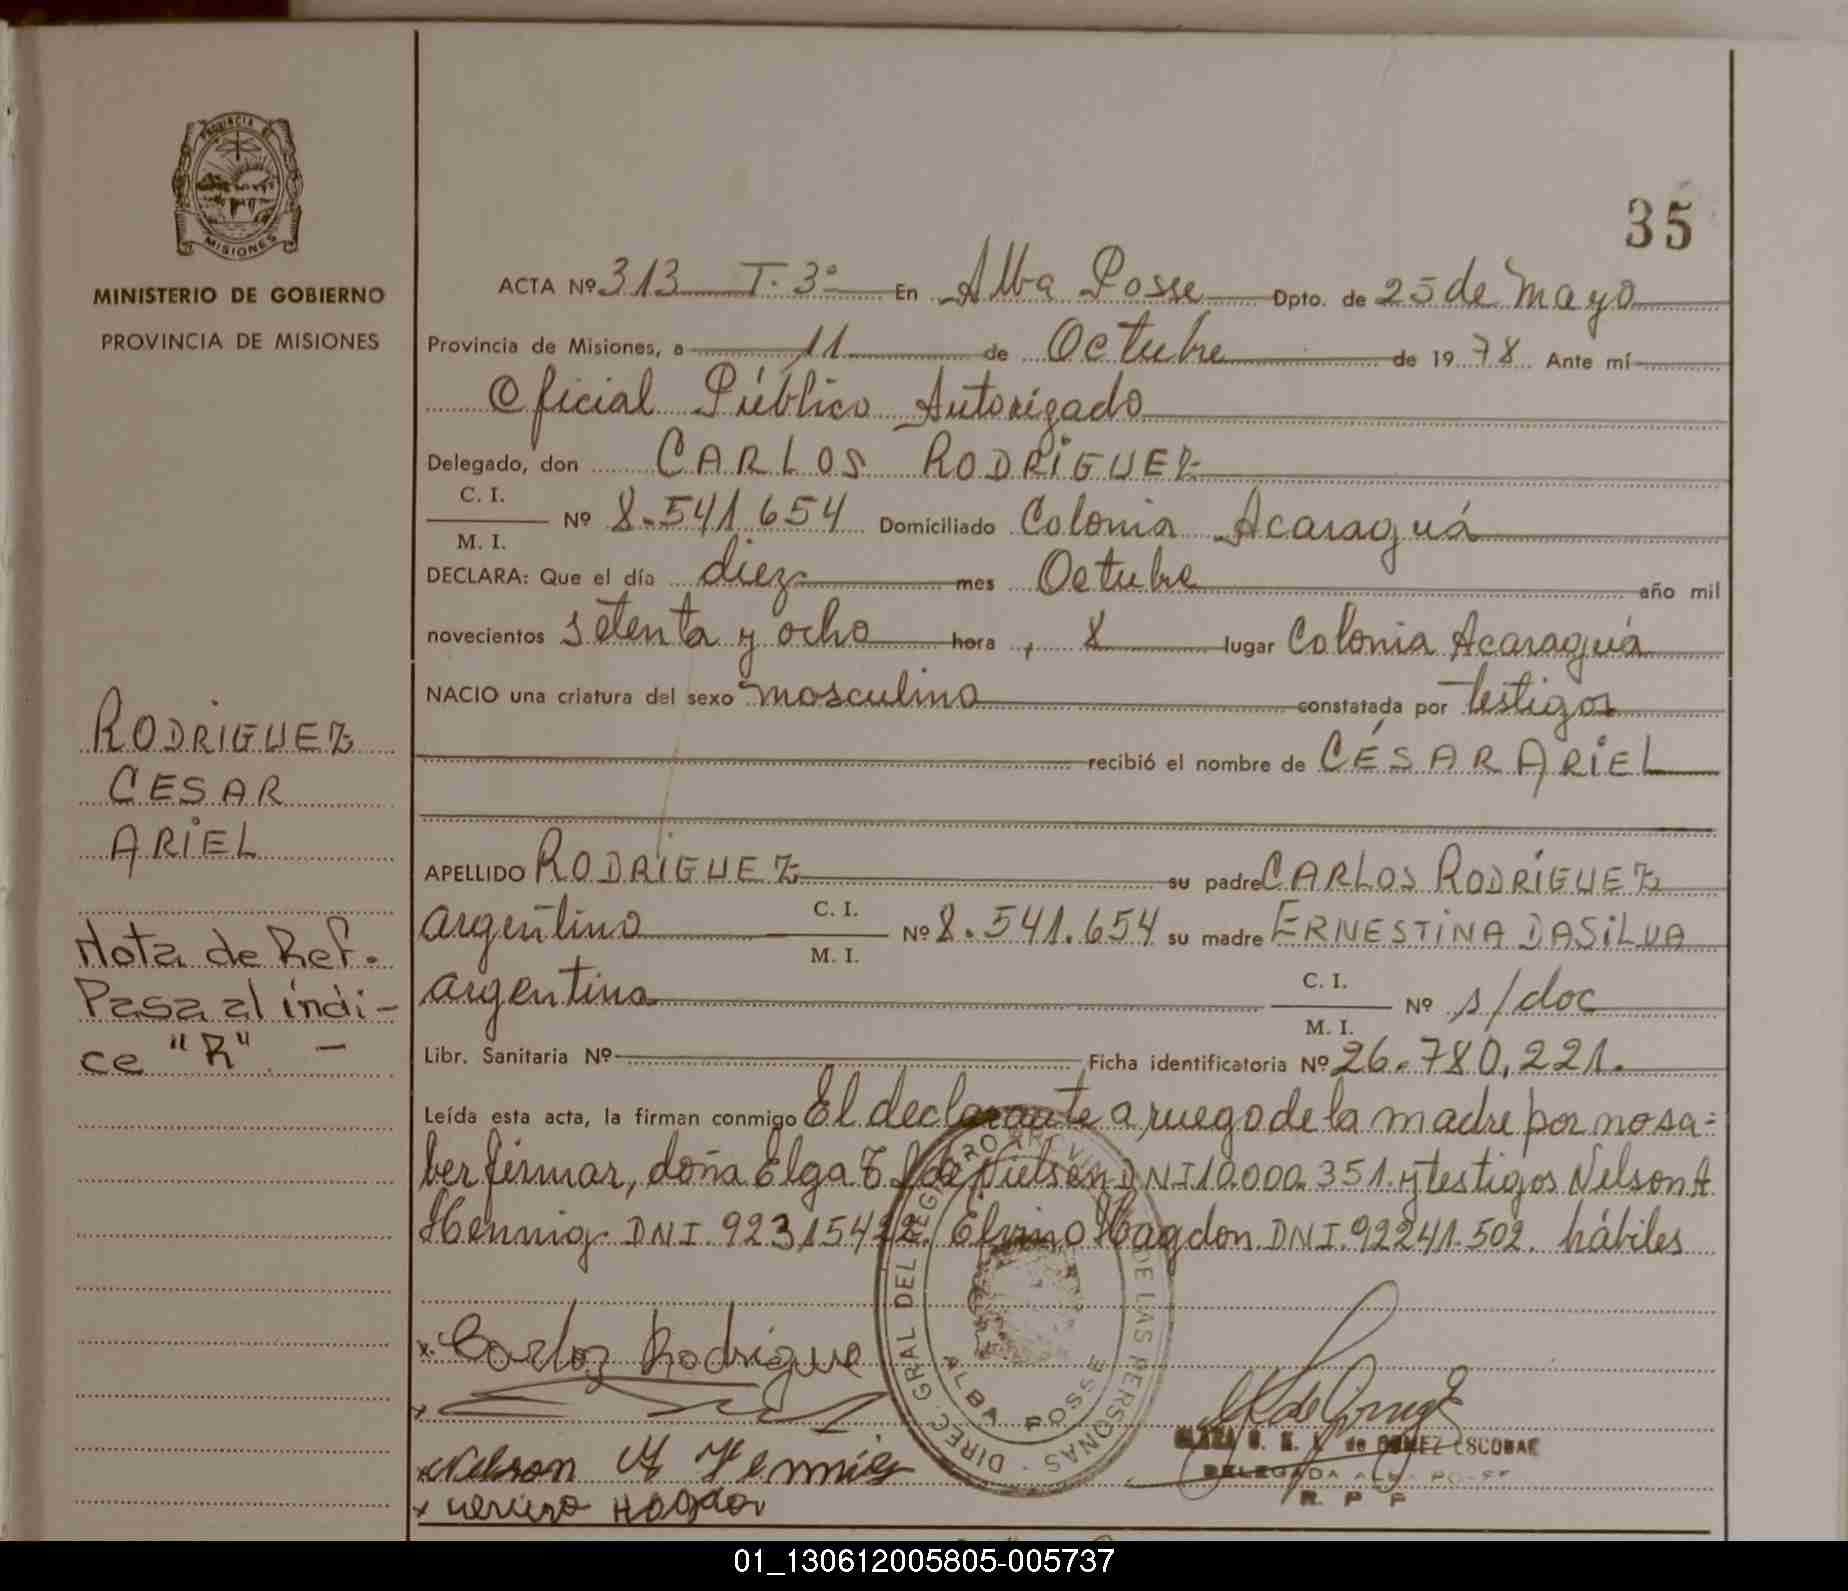 PROVINCIA DE
MISIONES
MINISTERIO DE GOBIERNO
PROVINCIA DE MISIONES
35
ACTA Nº 313 T. 3º En Alba Posse Dpto. de 25 de Mayo
Provincia de Misiones, a 11 de Octubre de 1978 Ante mí
Oficial Público Autorizado
Delegado, don CARLOS RODRIGUEZ
C. I.
Nº 8.541.654 Domiciliado Colonia Acaraguá
M. I.
DECLARA: Que el día diez mes Octubre año mil
novecientos setenta y ocho hora, 8 lugar Colonia Acaraguá
NACIO una criatura del sexo masculino constatada por testigos
recibió el nombre de CÉSAR ARIEL
APELLIDO RODRIGUEZ su padre CARLOS RODRIGUEZ
argentino C. I. Nº 8.541.654 su madre ERNESTINA DASILVA
M. I.
argentina C. I. Nº s/doc
M. I.
Libr. Sanitaria Nº Ficha identificatoria Nº 26.780.221.
Leída esta acta, la firman conmigo El declarante a ruego de la madre por no sa-
ber firmar, doña Elga de Nielsen DNI 10.000.351. y testigos Nelson A.
Hennig DNI. 92315422. Elvino Hagdon DNI. 92241.502. hábiles
RODRIGUEZ
CESAR
ARIEL
Nota de Ref.
Pasa al índi-
ce "R". -
x Carlos Rodrigue
x
x Nelson Hennig
x Hagdon
DIREC. GRAL DEL REGISTRO DE LAS PERSONAS
ALBA POSSE
de GOMEZ ESCOBAR
DELEGADA ALBA POSSE
R. P. P
01_130612005805-005737